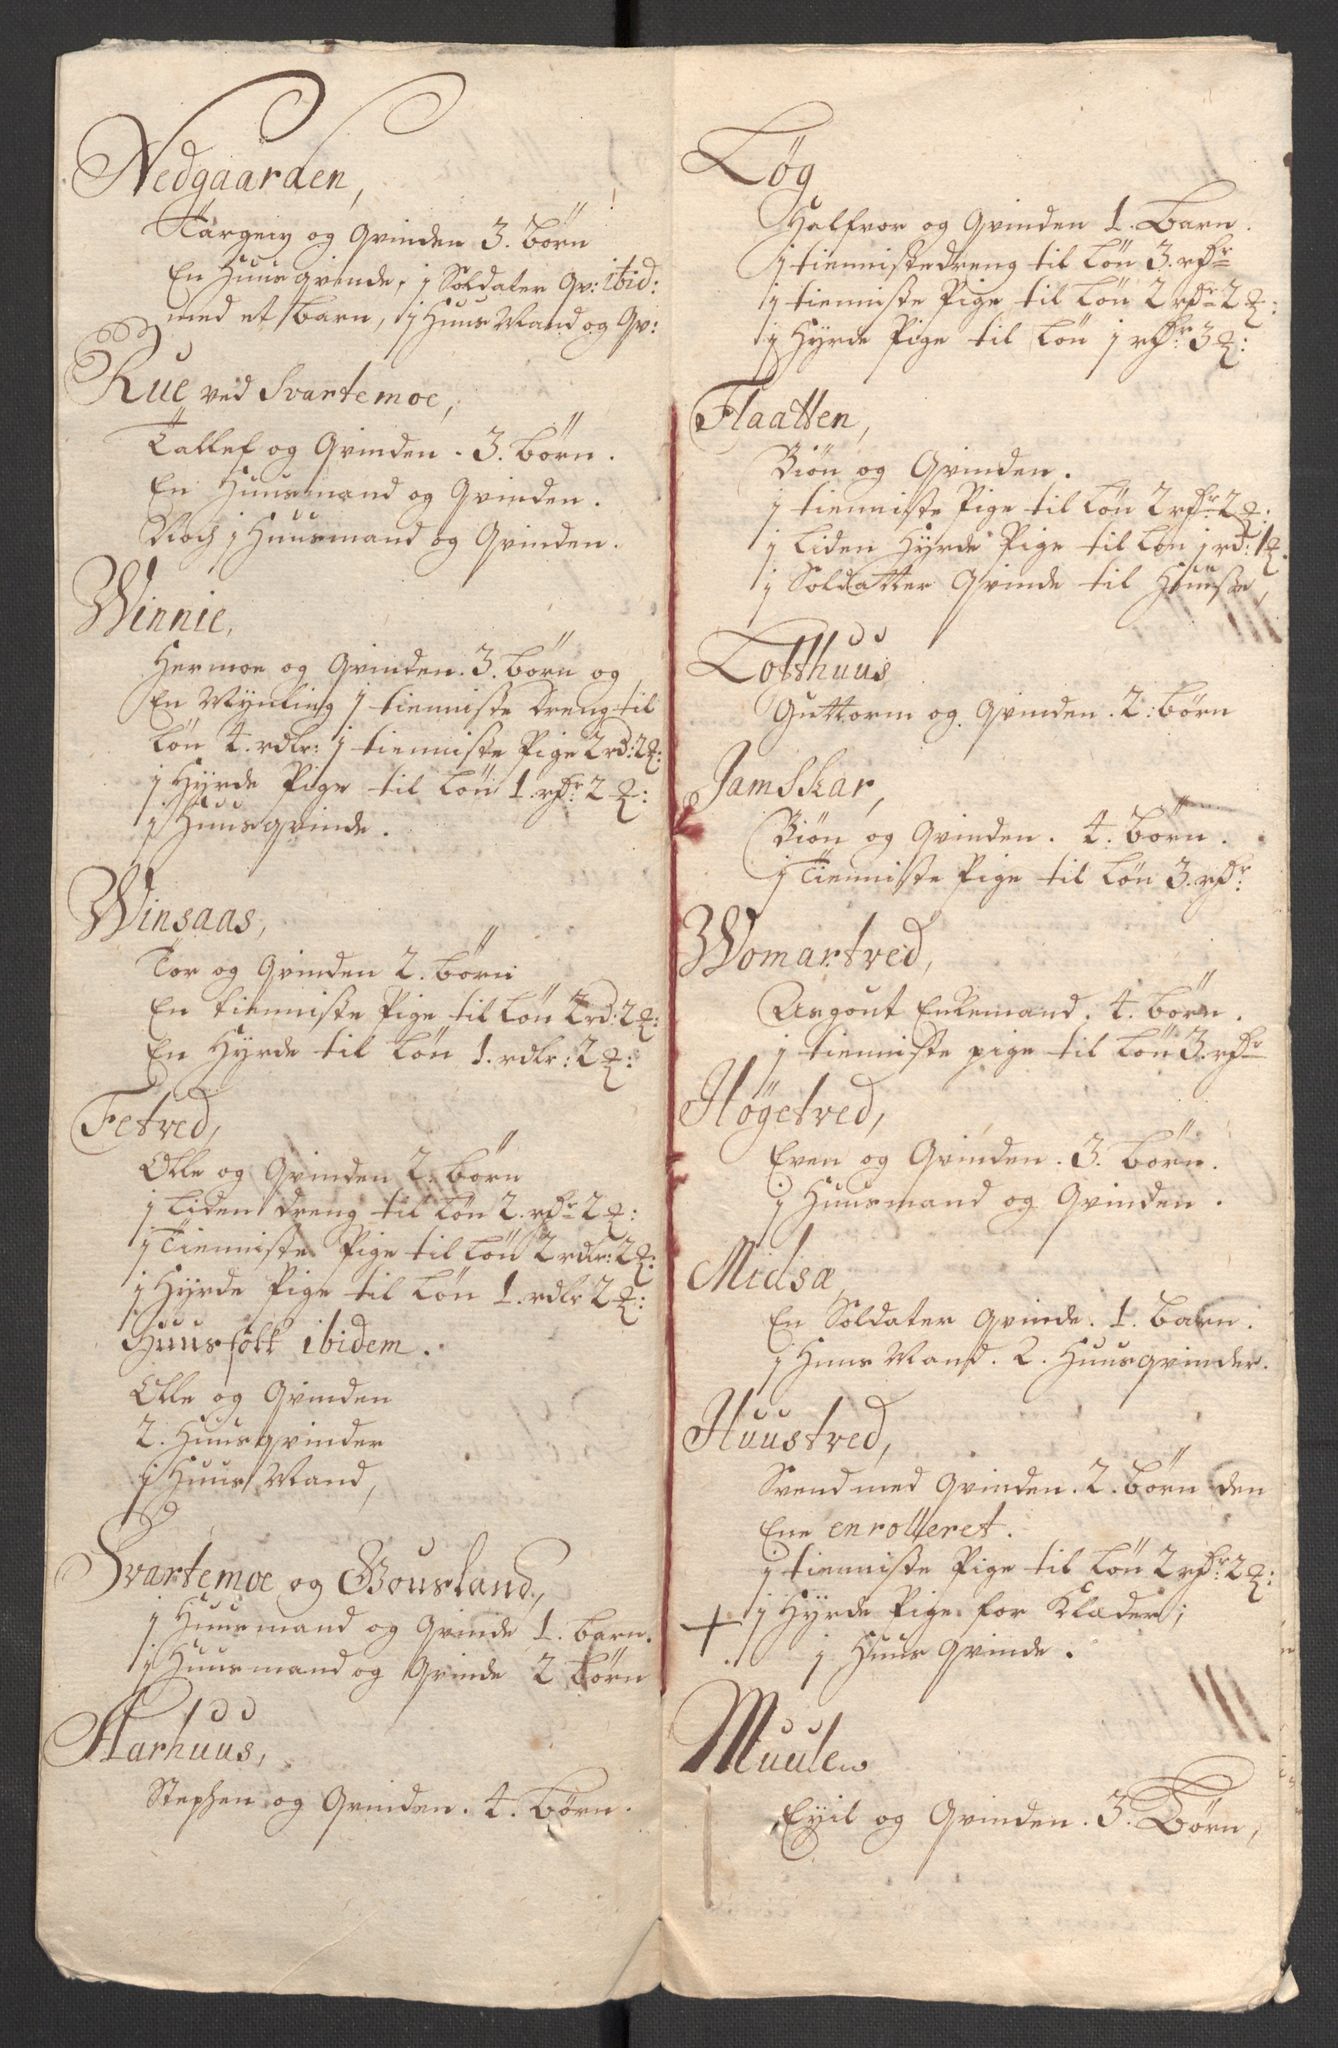 Nedgaarden,
Targeiv og Qvinden 3. börn
En Huus qvinde, j Soldater Qv: ibid:
med et barn, j Huus Mand og Qv:
Rue ved Svartemoe,
Tallef og Qvinden. 3. börn.
En Huusmand og Qvinden.
Noch j Huusmand og Qvinden.
Winnie,
Hermoe og Qvinden. 3. börn og
En Mynling j tienniste dreng til
Lön 4. rdlr: j tienniste Pige 2 rd: 2
j Hyrde Pige til Lön 1. rdr: 2
j Huusqvinde.
Winsaas,
Tor og Qvinden 2. börn
En tienniste Pige til Lön 2 rd: 2
En Hyrde til Lön 1. rdlr: 2
Fetved,
Olle og Qvinden 2. börn
j Liden dreng til Lön 2. rdr 2
j Tienniste Pige til Lön 2 rdlr: 2
j Hyrde Pige til Lön 1. rdlr 2
Huusfolk ibidem.
Olle og Qvinden
2. Huusqvinder
j Huus Mand,
Svartemoe og Gousland,
j Huusmand og Qvinde 1. barn.
j Huusmand og Qvinde 2 börn
Aarhuus,
Stephen og Qvinden. 4. börn.
Løg
Halfvor og Qvinden 1. barn.
j tiennistedreng til Lön 3. rdr
j tienniste Pige til Lön 2 rdr 2
j Hyrde Pige til Lön j rdr: 3
Flaatten,
Biön og Qvinden.
j tienniste Pige til Lön 2 rdr 2
j Liden Hyrde Pige til Lön j rd: 1
j Soldatter Qvinde til Huuse,
Lofthuus
Guttorm og Qvinden. 2: börn
Jamskar,
Biön og Qvinden. 4. börn.
j Tienniste Pige til Lön 3. rdr:
Womartved,
Asgout Enkemand. 4. börn.
j tienniste pige til Lön 3. rdr
Högetved,
Even og Qvinden. 3. börn.
j Huusmand og Qvinden.
Midsæ,
En Soldater Qvinde. 1. barn.
j Huus Mand. 2. Huusqvinder.
Huustved,
Svend med Qvinden. 2. börn den
Ene enrolleret.
j tienniste Pige til Lön 2 rdr: 2
j Hyrde Pige for Klæder;
j Huus Qvinde.
Muulen
Eyil og Qvinden. 3. Börn,